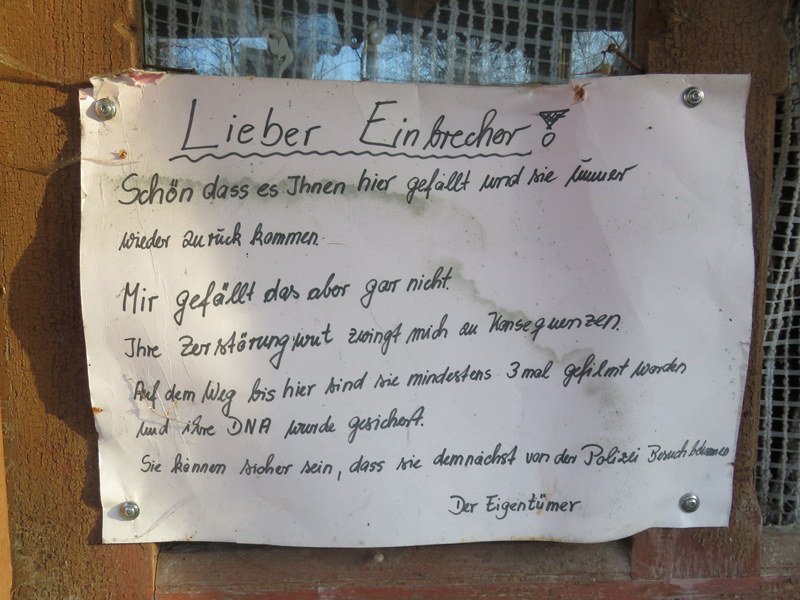 Lieber Einbrecher!
Schön dass es Ihnen hier gefällt und sie immer
wieder zurück kommen.
Mir gefällt das aber gar nicht.
Ihre Zerstörungswut zwingt mich zu Konsequenzen.
Auf dem Weg bis hier sind sie mindestens 3 mal gefilmt worden
und ihre DNA wurde gesichert.
Sie können sicher sein, dass sie demnächst von der Polizei Besuch bekommen
Der Eigentümer